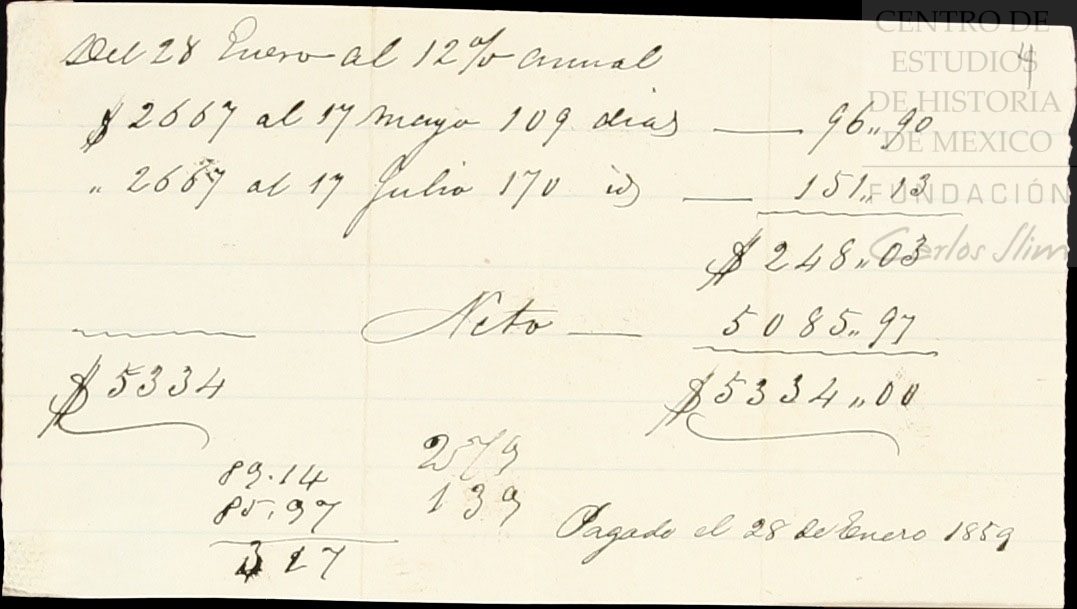 Del 28 Enero al 12% anual
$ 2667 al 17 mayo 109 dias — 96,,90
,, 2667 al 17 Julio 170 id — 151,,13
$ 248,,03
Neto — 5085,,97
$ 5334 $ 5334,,00
89.14 2579
85.97 139
317
Pagado el 28 de Enero 1859
4
CENTRO DE
ESTUDIOS
DE HISTORIA
DE MEXICO
FUNDACIÓN
Carlos Slim